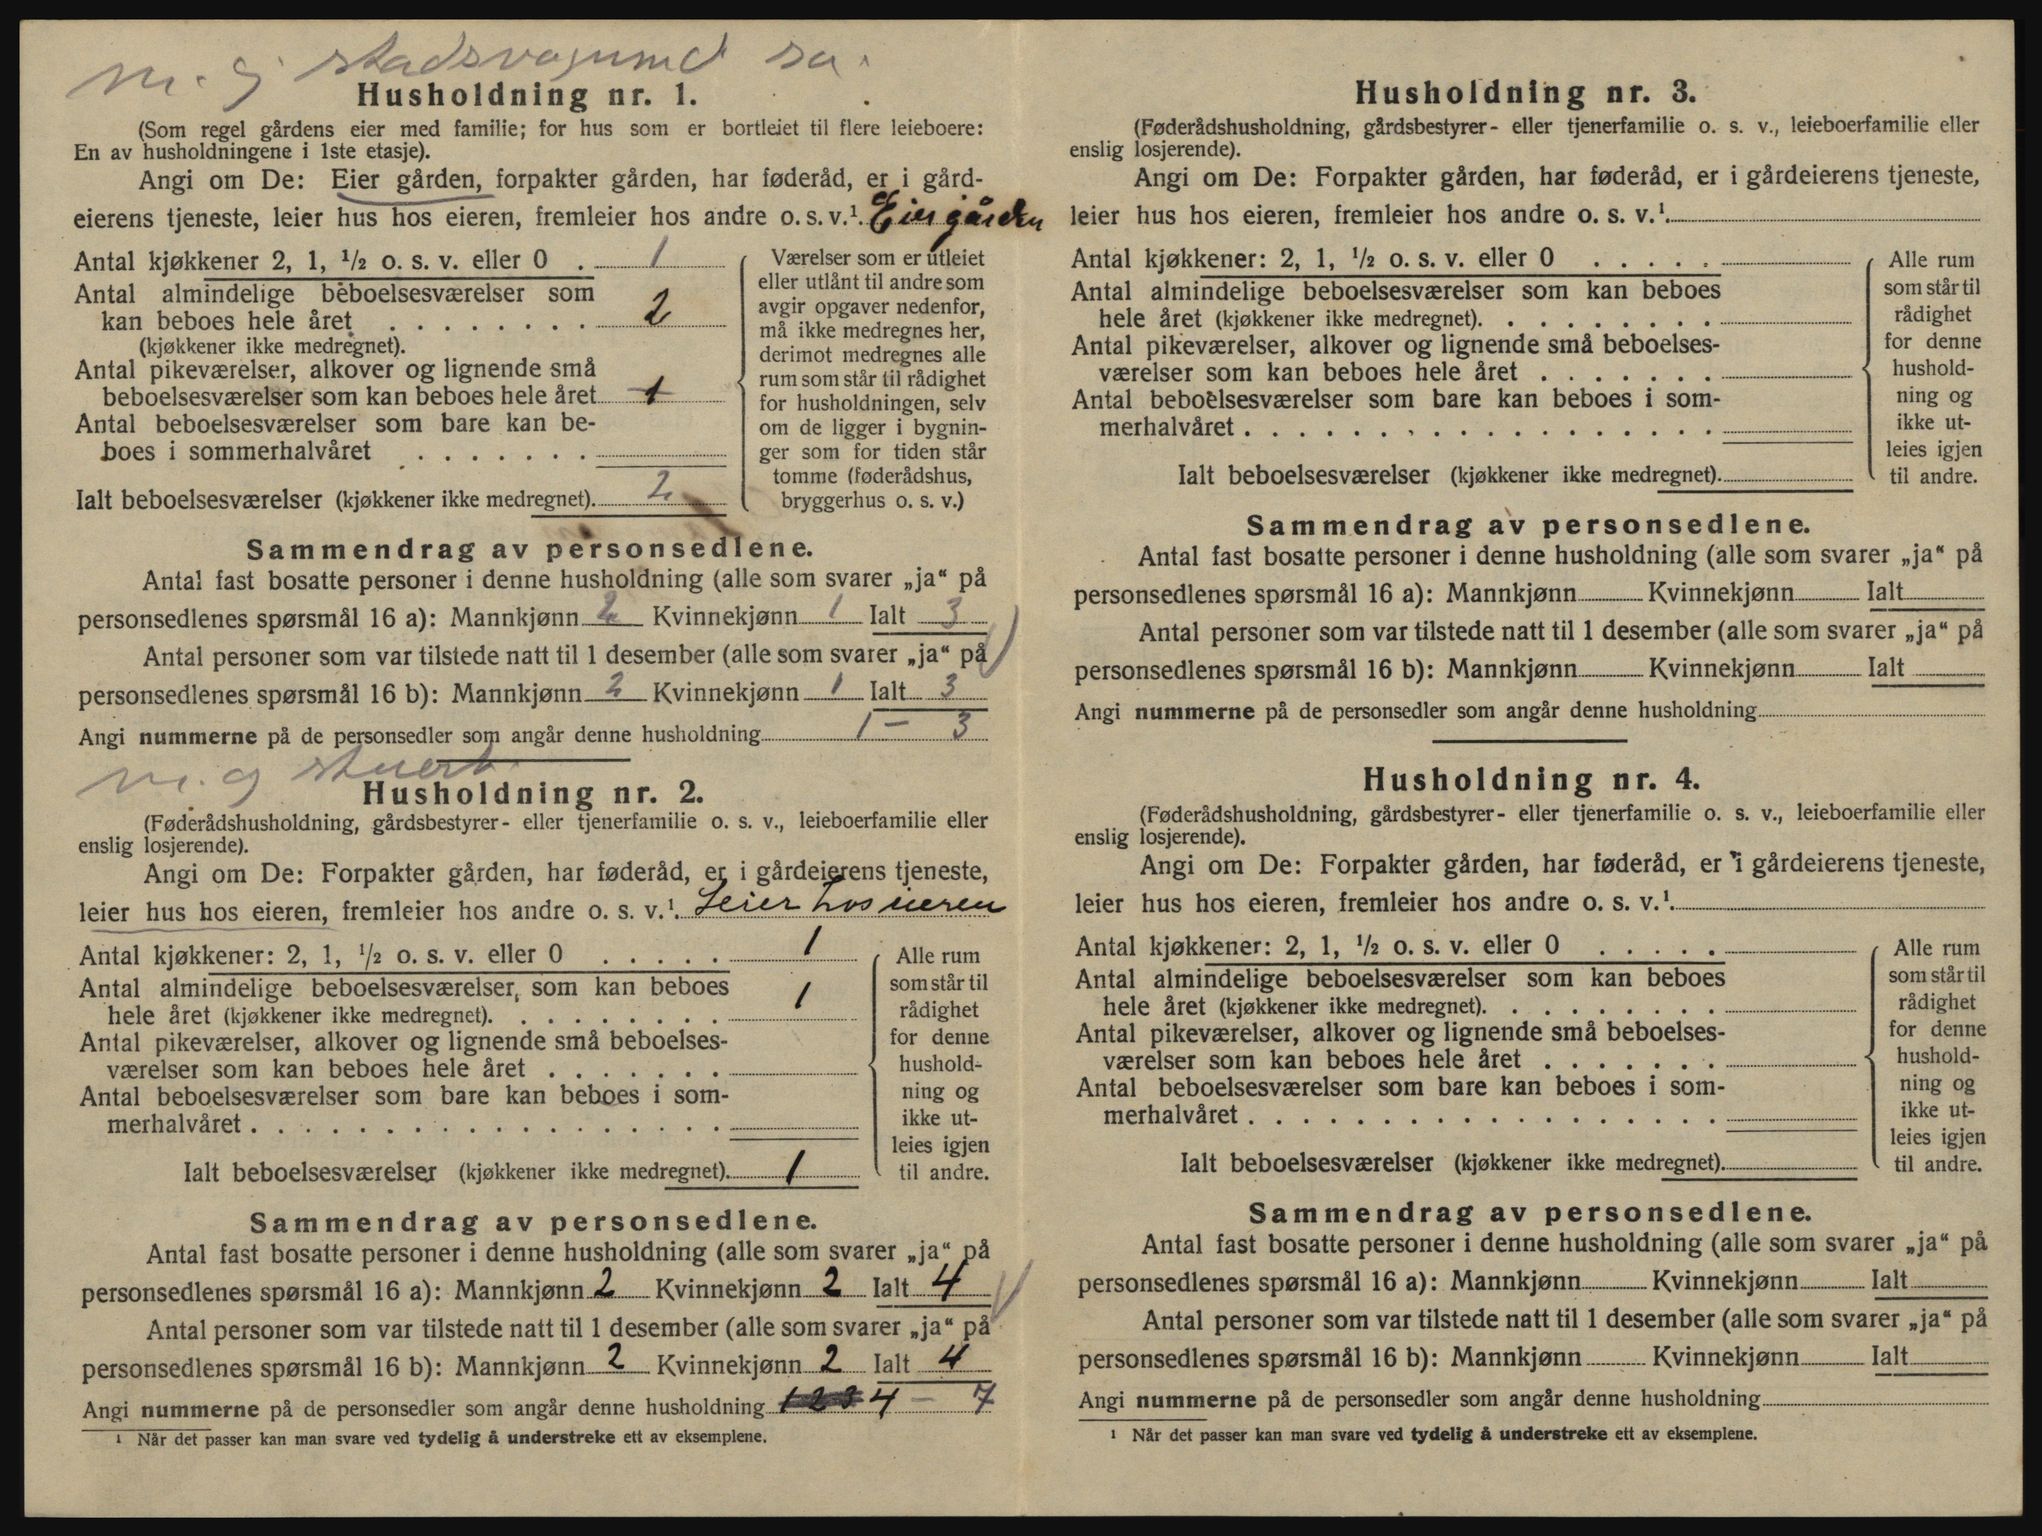 Husholdning nr. 1.
(Som regel gårdens eier med familie; for hus som er bortleiet til flere leieboere:
En av husholdningene i 1ste etasje).
Angi om De: Eier gården, forpakter gården, har føderåd, er i gård-
eierens tjeneste, leier hus hos eieren, fremleier hos andre o. s. v.¹. Eier gården
Antal kjøkkener 2, 1, ½ o. s. v. eller 0 . 1
Antal almindelige beboelsesværelser som
kan beboes hele året . . . . . . . . 2
(kjøkkener ikke medregnet).
Antal pikeværelser, alkover og lignende små
beboelsesværelser som kan beboes hele året 1
Antal beboelsesværelser som bare kan be-
boes i sommerhalvåret . . . . . . .
Ialt beboelsesværelser (kjøkkener ikke medregnet). 2
Værelser som er utleiet
eller utlånt til andre som
avgir opgaver nedenfor,
må ikke medregnes her,
derimot medregnes alle
rum som står til rådighet
for husholdningen, selv
om de ligger i bygnin-
ger som for tiden står
tomme (føderådshus,
bryggerhus o. s. v.)
Sammendrag av personsedlene.
Antal fast bosatte personer i denne husholdning (alle som svarer „ja“ på
personsedlenes spørsmål 16 a): Mannkjønn 2 Kvinnekjønn 1 Ialt 3
Antal personer som var tilstede natt til 1 desember (alle som svarer „ja“ på
personsedlenes spørsmål 16 b): Mannkjønn 2 Kvinnekjønn 1 Ialt 3
Angi nummerne på de personsedler som angår denne husholdning 1 – 3
m. g
Husholdning nr. 2.
(Føderådshusholdning, gårdsbestyrer- eller tjenerfamilie o. s. v., leieboerfamilie eller
enslig losjerende).
Angi om De: Forpakter gården, har føderåd, er i gårdeierens tjeneste,
leier hus hos eieren, fremleier hos andre o. s. v.¹. Leier hos eieren
Antal kjøkkener: 2, 1, ½ o. s. v. eller 0 . . . . . 1
Antal almindelige beboelsesværelser, som kan beboes
hele året (kjøkkener ikke medregnet). . . . . . . . . 1
Antal pikeværelser, alkover og lignende små beboelses-
værelser som kan beboes hele året . . . . . . .
Antal beboelsesværelser som bare kan beboes i som-
merhalvåret . . . . . . . . . . . . . . . . . .
Ialt beboelsesværelser (kjøkkener ikke medregnet). 1
Alle rum
som står til
rådighet
for denne
hushold-
ning og
ikke ut-
leies igjen
til andre.
Sammendrag av personsedlene.
Antal fast bosatte personer i denne husholdning (alle som svarer „ja“ på
personsedlenes spørsmål 16 a): Mannkjønn 2 Kvinnekjønn 2 Ialt 4
Antal personer som var tilstede natt til 1 desember (alle som svarer „ja“ på
personsedlenes spørsmål 16 b): Mannkjønn 2 Kvinnekjønn 2 Ialt 4
Angi nummerne på de personsedler som angår denne husholdning 1 2 3 4 – 7
¹ Når det passer kan man svare ved tydelig å understreke ett av eksemplene.
Husholdning nr. 3.
(Føderådshusholdning, gårdsbestyrer- eller tjenerfamilie o. s. v., leieboerfamilie eller
enslig losjerende).
Angi om De: Forpakter gården, har føderåd, er i gårdeierens tjeneste,
leier hus hos eieren, fremleier hos andre o. s. v.¹.
Antal kjøkkener: 2, 1, ½ o. s. v. eller 0 . . . . .
Antal almindelige beboelsesværelser som kan beboes
hele året (kjøkkener ikke medregnet). . . . . . . . .
Antal pikeværelser, alkover og lignende små beboelses-
værelser som kan beboes hele året . . . . . . .
Antal beboelsesværelser som bare kan beboes i som-
merhalvåret . . . . . . . . . . . . . . . . . .
Ialt beboelsesværelser (kjøkkener ikke medregnet).
Alle rum
som står til
rådighet
for denne
hushold-
ning og
ikke ut-
leies igjen
til andre.
Sammendrag av personsedlene.
Antal fast bosatte personer i denne husholdning (alle som svarer „ja“ på
personsedlenes spørsmål 16 a): Mannkjønn Kvinnekjønn Ialt
Antal personer som var tilstede natt til 1 desember (alle som svarer „ja“ på
personsedlenes spørsmål 16 b): Mannkjønn Kvinnekjønn Ialt
Angi nummerne på de personsedler som angår denne husholdning
Husholdning nr. 4.
(Føderådshusholdning, gårdsbestyrer- eller tjenerfamilie o. s. v., leieboerfamilie eller
enslig losjerende).
Angi om De: Forpakter gården, har føderåd, er i gårdeierens tjeneste,
leier hus hos eieren, fremleier hos andre o. s. v.¹.
Antal kjøkkener: 2, 1, ½ o. s. v. eller 0 . . . . .
Antal almindelige beboelsesværelser som kan beboes
hele året (kjøkkener ikke medregnet). . . . . . . . .
Antal pikeværelser, alkover og lignende små beboelses-
værelser som kan beboes hele året . . . . . . .
Antal beboelsesværelser som bare kan beboes i som-
merhalvåret . . . . . . . . . . . . . . . . . .
Ialt beboelsesværelser (kjøkkener ikke medregnet).
Alle rum
som står til
rådighet
for denne
hushold-
ning og
ikke ut-
leies igjen
til andre.
Sammendrag av personsedlene.
Antal fast bosatte personer i denne husholdning (alle som svarer „ja“ på
personsedlenes spørsmål 16 a): Mannkjønn Kvinnekjønn Ialt
Antal personer som var tilstede natt til 1 desember (alle som svarer „ja“ på
personsedlenes spørsmål 16 b): Mannkjønn Kvinnekjønn Ialt
Angi nummerne på de personsedler som angår denne husholdning
¹ Når det passer kan man svare ved tydelig å understreke ett av eksemplene.